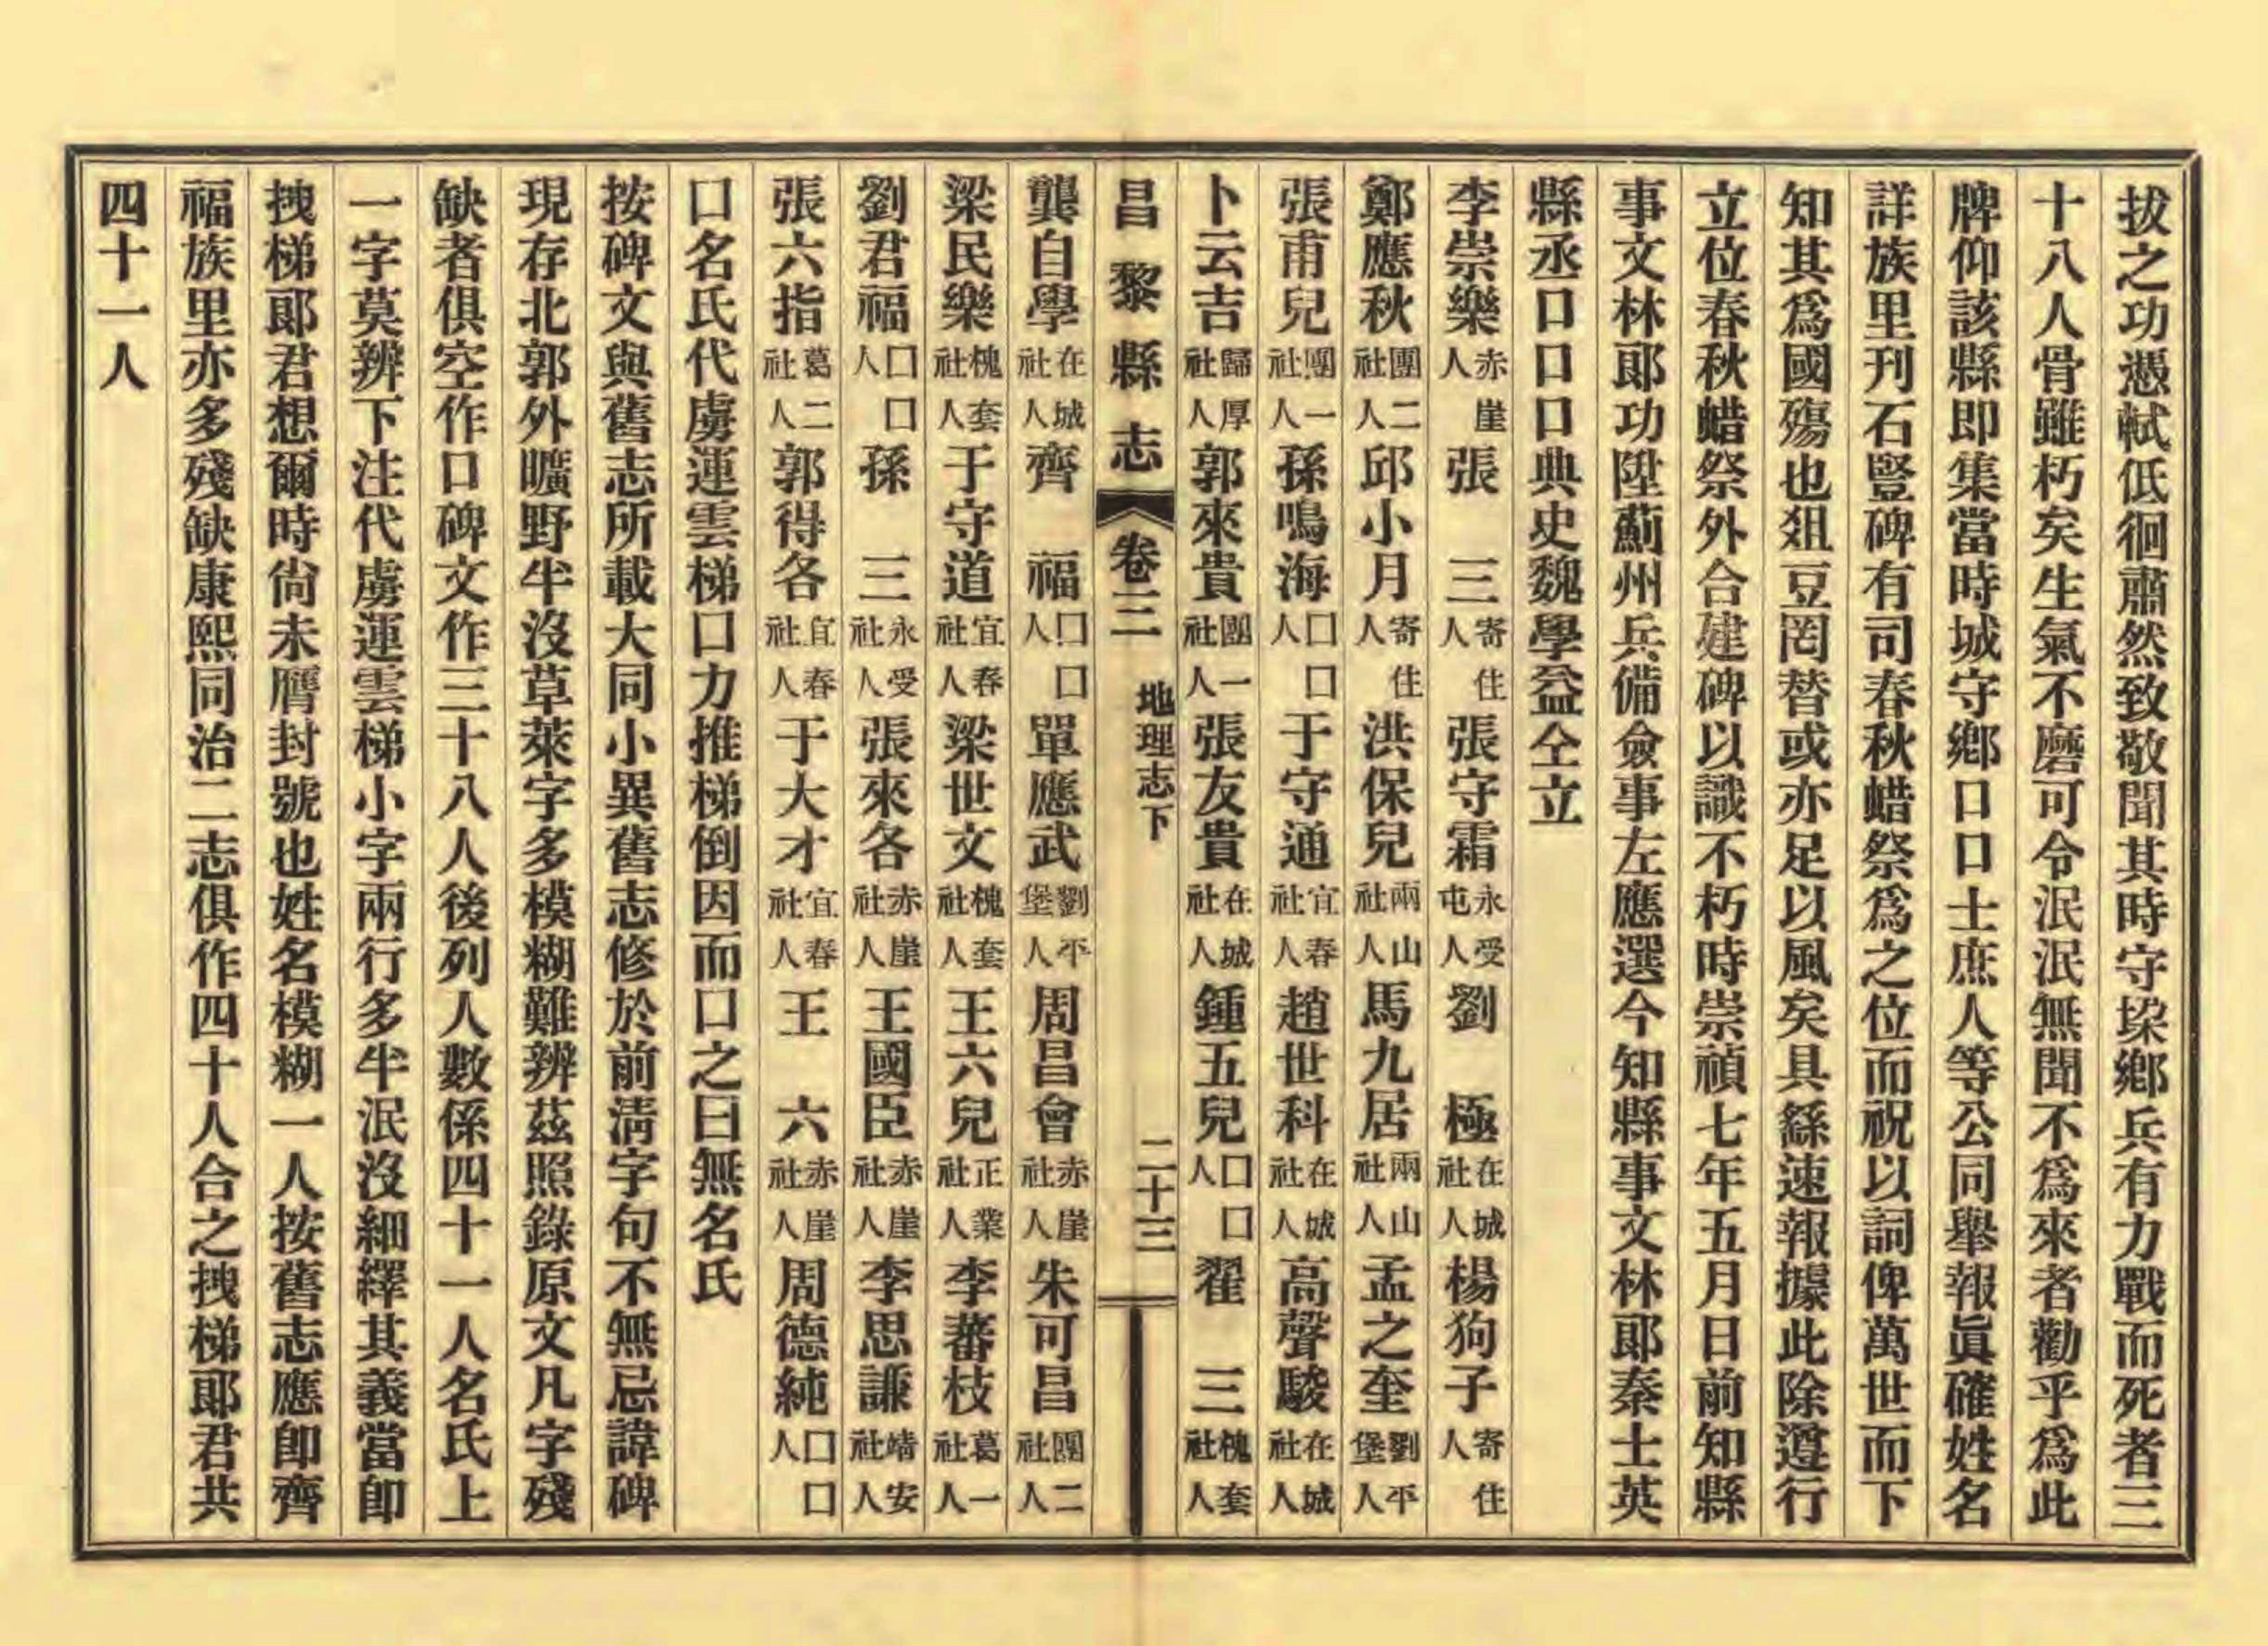 拔之功憑軾低徊肅然致敬聞其時守垛鄉兵有力戰而死者三
十八人骨雖朽矣生氣不磨可令泯泯無聞不爲來者勸乎爲此
牌仰該縣即集當時城守鄉口口士庶人等公同舉報眞確姓名
詳族里刊石豎碑有司春秋蜡祭爲之位而祝以詞俾萬世而下
知其爲國殤也俎豆罔替或亦足以風矣具繇速報據此除遵行
立位春秋蜡祭外合建碑以識不朽時崇禎七年五月日前知縣
事文林郞功陞薊州兵備僉事左應選今知縣事文林郞秦士英
縣丞口口口典史魏學益仝立
李崇樂赤崖人 張 三寄住人 張守霜永受屯人 劉 極在城社人 楊狗子寄住人
鄭應秋團二社人 邱小月寄住人 洪保兒兩山社人 馬九居兩山社人 孟之奎劉平堡人
張甫兒團一社人 孫鳴海口口人 于守通宜春社人 趙世科在城社人 高聲駿在城社人
卜云吉歸厚社人 郭來貴團一社人 張友貴在城社人 鍾五兒口口人 翟 三槐套社人
昌黎縣志 卷三 地理志下 二十三
龔自學在城社人 齊 福口口人 單應武劉平堡人 周昌會赤崖社人 朱可昌團二社人
梁民樂槐套社人 于守道宜春社人 梁世文槐套社人 王六兒正業社人 李蕃枝葛一社人
劉君福口口人 孫 三永受社人 張來各赤崖社人 王國臣赤崖社人 李思謙靖安社人
張六指葛二社人 郭得各宜春社人 于大才宜春社人 王 六赤崖社人 周德純口口人
口名氏代虜運雲梯口力推梯倒因而口之曰無名氏
按碑文與舊志所載大同小異舊志修於前淸字句不無忌諱碑
現存北郭外曠野半沒草萊字多模糊難辨茲照錄原文凡字殘
缺者俱空作口碑文作三十八人後列人數係四十一人名氏上
一字莫辨下注代虜運雲梯小字兩行多半泯沒細繹其義當卽
拽梯郞君想爾時尙未膺封號也姓名模糊一人按舊志應卽齊
福族里亦多殘缺康熙同治二志俱作四十人合之拽梯郞君共
四十一人